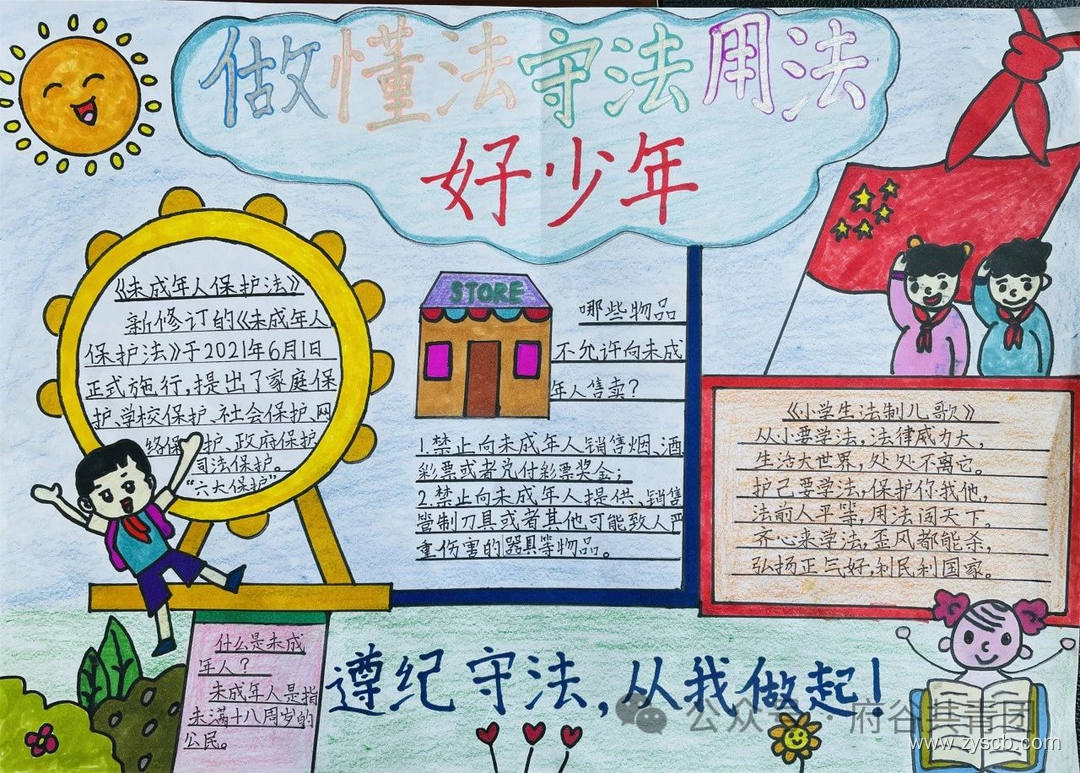 做懂法守法用法
好少年
《未成年人保护法》
新修订的《未成年人
保护法》于2021年6月1日
正式施行,提出了家庭保
护、学校保护、社会保护、网
络保护、政府保护、
司法保护。
“六大保护”
STORE
哪些物品
不允许向未成
年人售卖?
1.禁止向未成年人销售烟、酒
彩票或者兑付彩票奖金;
2.禁止向未成年人提供、销售
管制刀具或者其他可能致人严
重伤害的器具等物品。
《小学生法制儿歌》
从小要学法,法律威力大,
生活大世界,处处不离它。
护己要学法,保护你我他,
法前人平等,用法闯天下。
齐心来学法,歪风都能杀,
弘扬正气好,利民利国家。
什么是未成
年人?
未成年人是指
未满十八周岁的
公民。
遵纪守法,从我做起!
公众号·府谷共青团
www.zyscb.com